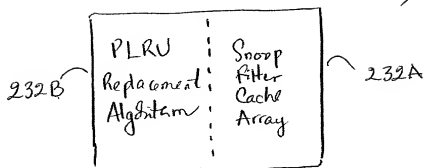 PLRU
Replacement
Algorithm
Snoop
Filter
Cache
Array
232B
232A